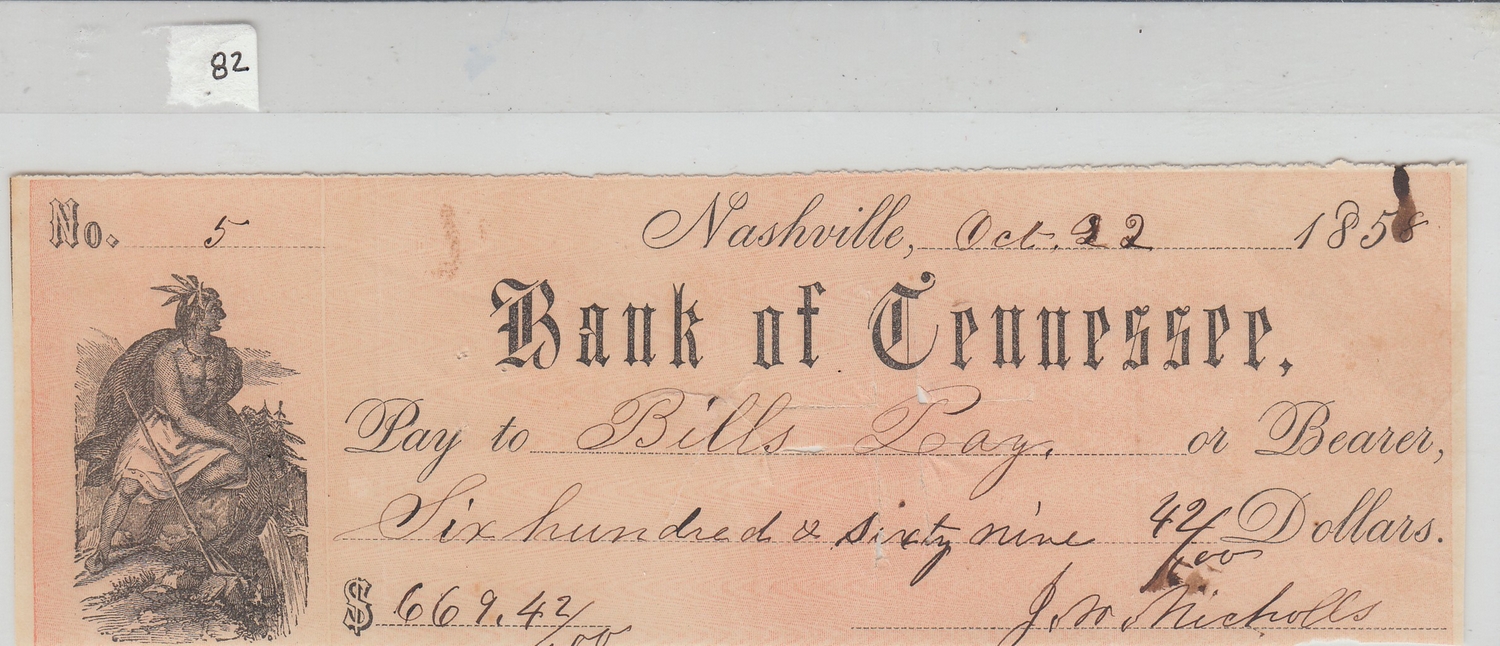 82
No. 5 Nashville, Oct. 22 1858
Bank of Tennessee.
Pay to Bills Pay. or Bearer,
Six hundred & sixty nine 42/100 Dollars.
$ 669.42/100 J. W. Nicholls